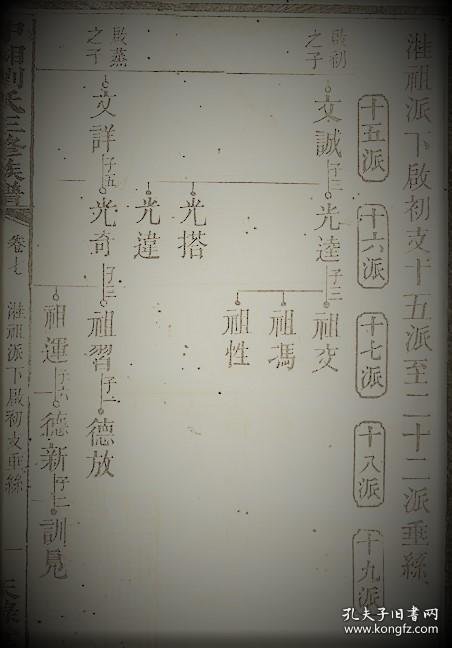 淮祖派下啟初支十五派至二十二派垂絲
十五派
十六派
十七派
十八派
十九派
啟初之子
文誠 子三
光逵 子三
祖交
祖馮
祖性
光搭
光違
啟蒸之子
文詳 子五
光奇 子三
祖習 子一
德放
祖運
德新 子二
訓見
劉氏三修族譜
卷七
淮祖派下啟初支垂絲
一
孔夫子旧书网
www.kongfz.com